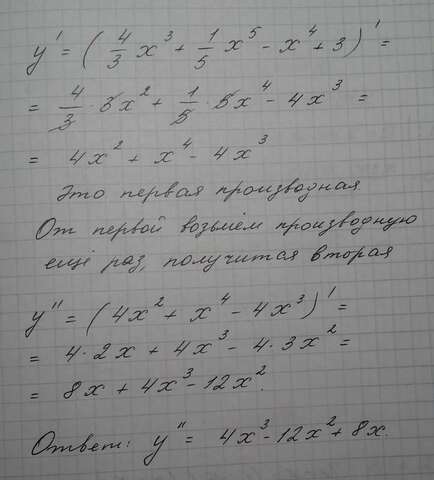 y' = ( 4/3 x³ + 1/5 x⁵ - x⁴ + 3 )' =
= 4/3 · 3x² + 1/5 · 5x⁴ - 4x³ =
= 4x² + x⁴ - 4x³
Это первая производная
От первой возьмём производную
ещё раз, получится вторая
y'' = ( 4x² + x⁴ - 4x³ )' =
= 4·2x + 4x³ - 4·3x² =
= 8x + 4x³ - 12x².
Ответ: y'' = 4x³ - 12x² + 8x.